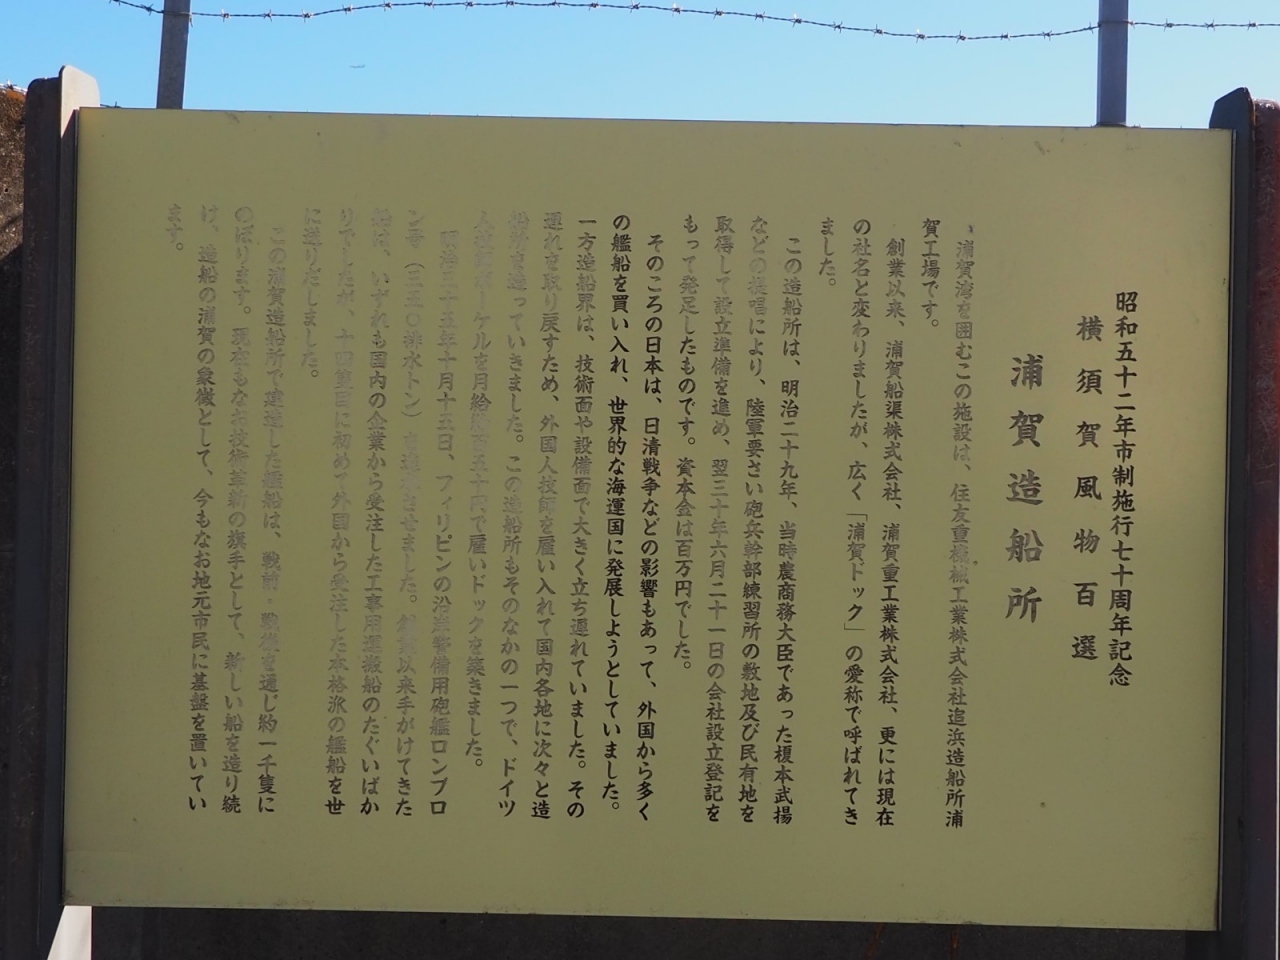 昭和五十二年市制施行七十周年記念
横須賀風物百選
浦賀造船所
浦賀湾を囲むこの施設は、住友重機械工業株式会社追浜造船所浦
賀工場です。
創業以来、浦賀船渠株式会社、浦賀重工業株式会社、更には現在
の社名と変わりましたが、広く「浦賀ドック」の愛称で呼ばれてき
ました。
この造船所は、明治二十九年、当時農商務大臣であった榎本武揚
などの提唱により、陸軍要さい砲兵幹部練習所の敷地及び民有地を
取得して設立準備を進め、翌三十年六月二十一日の会社設立登記を
もって発足したものです。資本金は百万円でした。
そのころの日本は、日清戦争などの影響もあって、外国から多く
の艦船を買い入れ、世界的な海運国に発展しようとしていました。
一方造船界は、技術面や設備面で大きく立ち遅れていました。その
遅れを取り戻すため、外国人技師を雇い入れて国内各地に次々と造
船所を造っていきました。この造船所もそのなかの一つで、ドイツ
人技師ボーケルを月給約百五十円で雇いドックを築きました。
明治三十五年十月十五日、フィリピンの沿岸警備用砲艦ロンブロ
ン号（三五〇排水トン）を進水させました。創業以来手がけてきた
船は、いずれも国内の企業から受注した工事用運搬船のたぐいばか
りでしたが、十四隻目に初めて外国から受注した本格派の艦船を世
に送りだしました。
この浦賀造船所で建造した艦船は、戦前・戦後を通じ約一千隻に
のぼります。現在もなお技術革新の旗手として、新しい船を造り続
け、造船の浦賀の象徴として、今もなお地元市民に基盤を置いてい
ます。